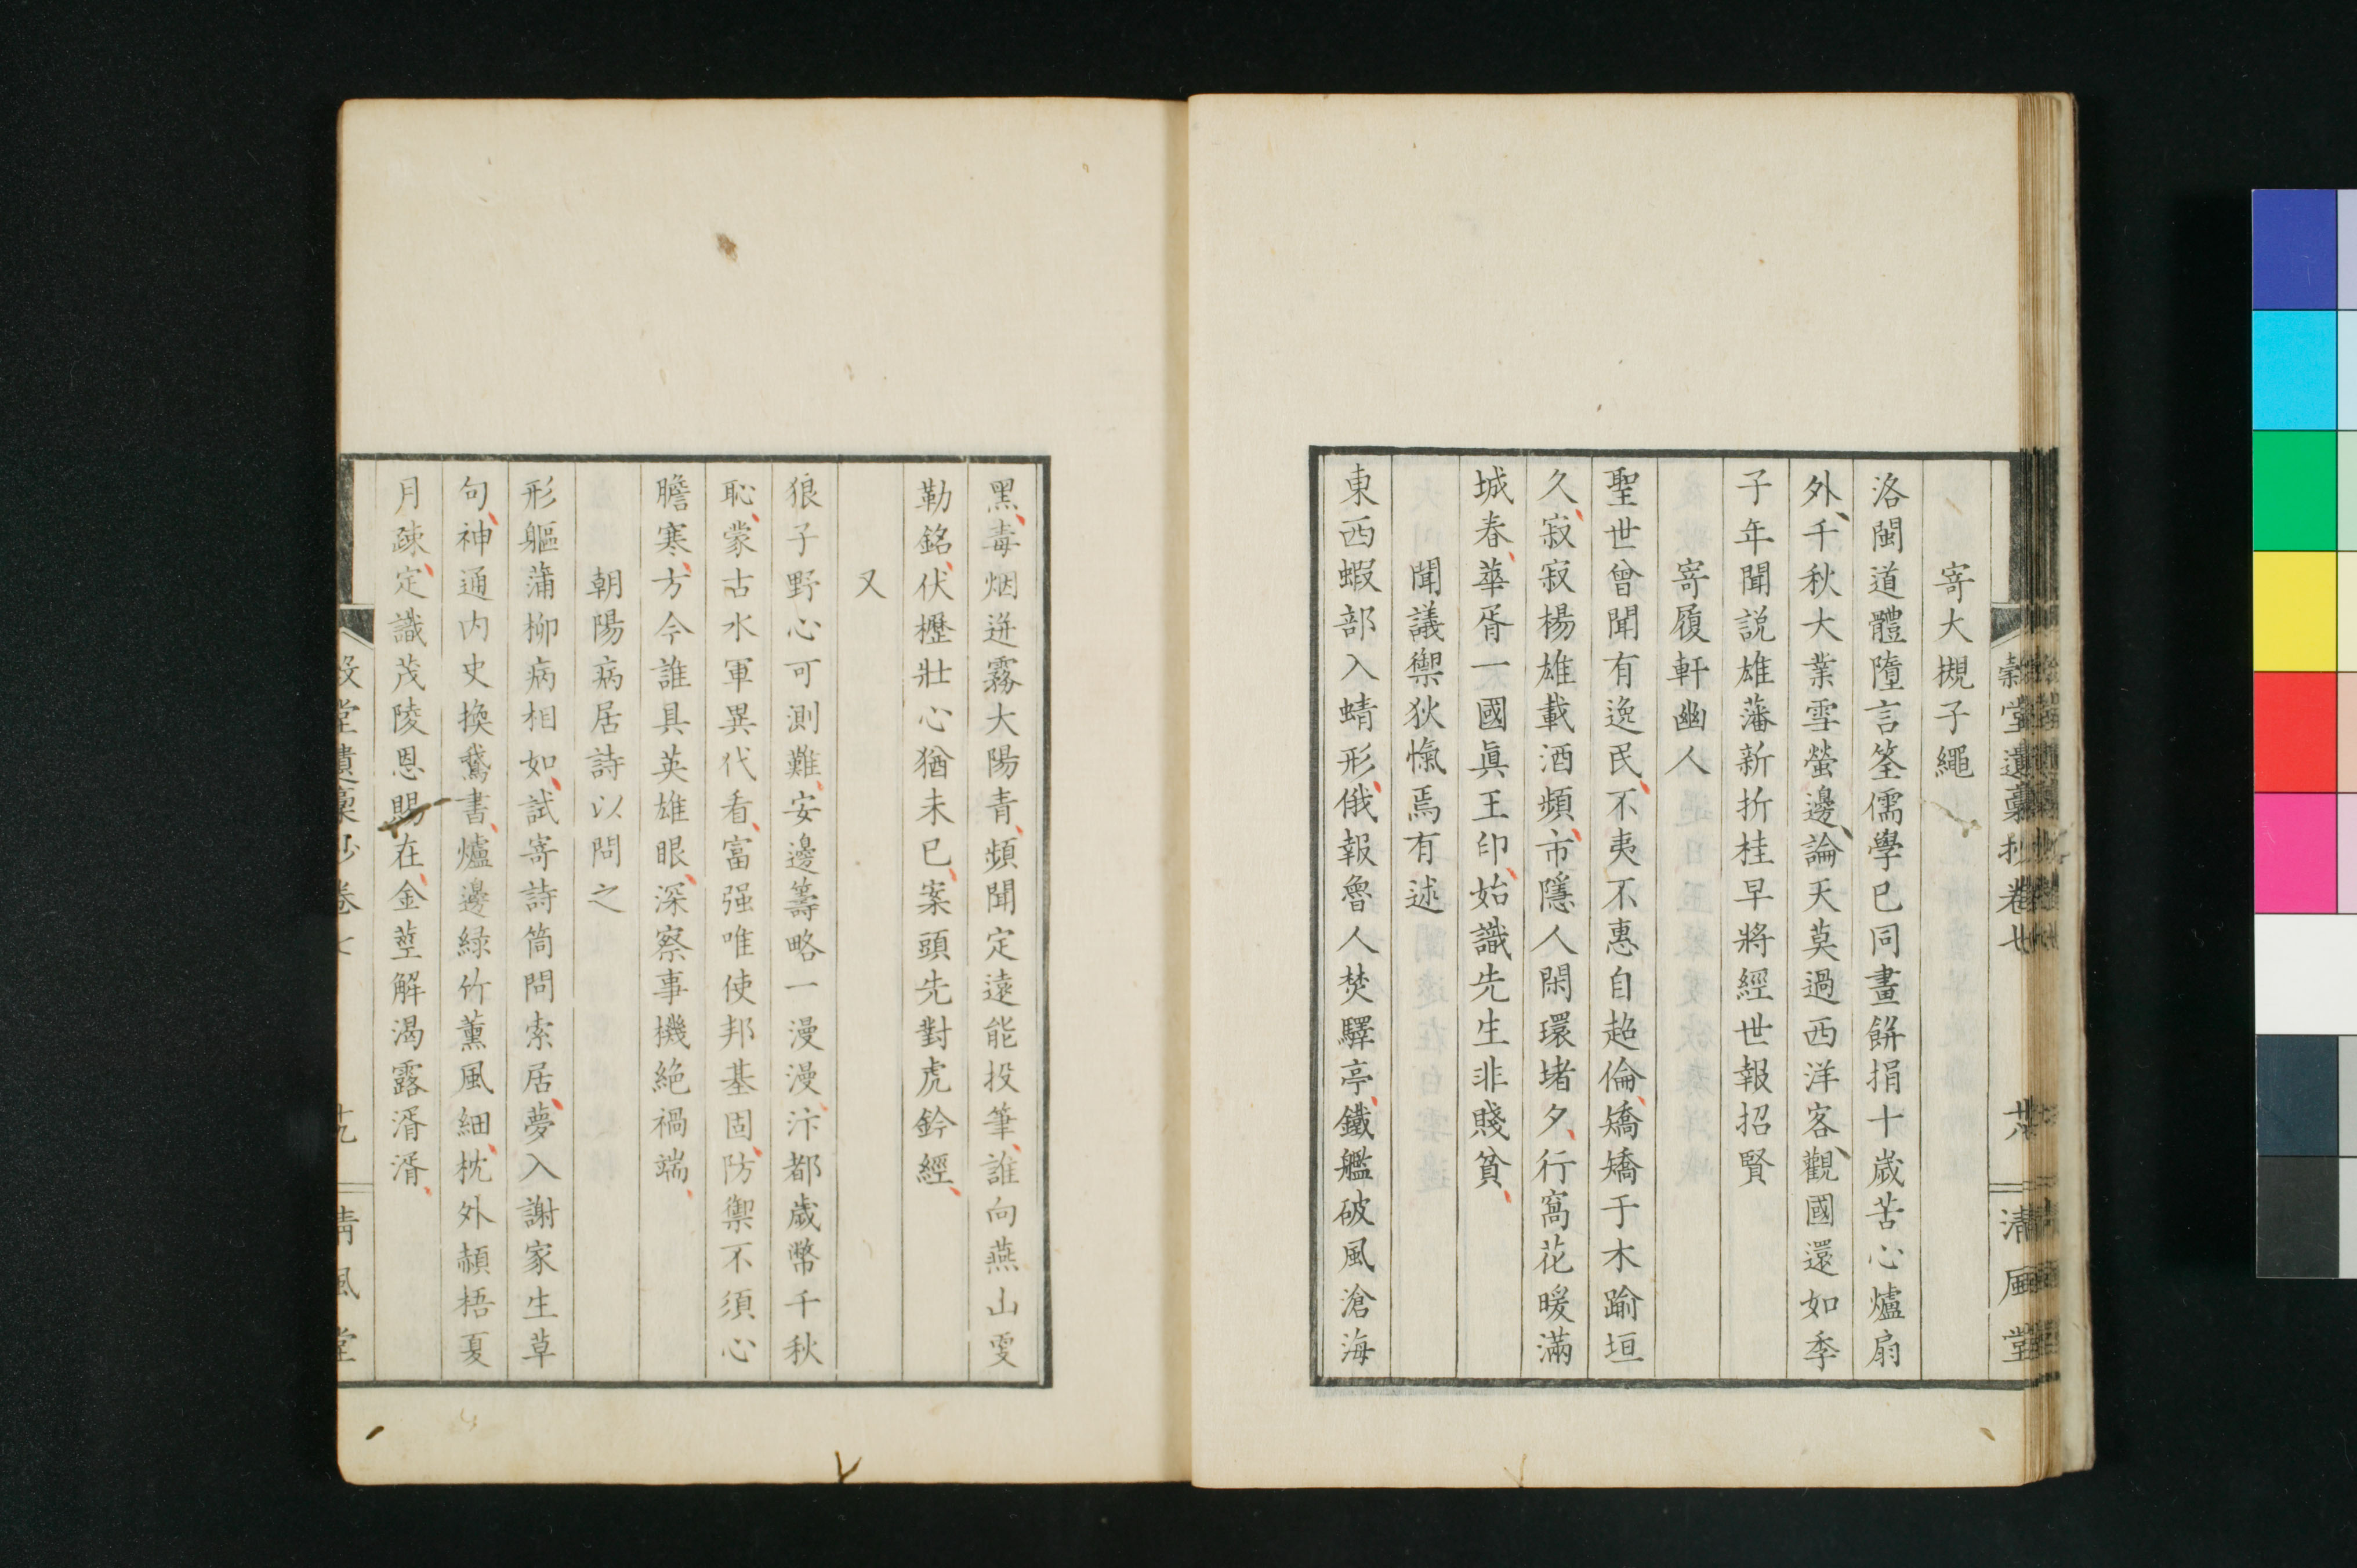 寄大槻子繩
洛閩道體墮言筌儒學已同畫餅捐十歲苦心爐扇
外千秋大業雪螢邊論天莫過西洋客觀國還如季
子年聞説雄藩新折桂早將經世報招賢
寄履軒幽人
聖世曾聞有逸民不夷不惠自超倫矯矯于木踰垣
久寂寂楊雄載酒頻市隱人閑環堵夕行窩花暖滿
城春華胥一國眞王印始識先生非賤貧
聞議禦狄愾焉有述
東西蝦部入蜻形俄報魯人焚驛亭鐵艦破風滄海
黑毒烟迸霧大陽青頻聞定遠能投筆誰向燕山雯
勒銘伏櫪壯心猶未已案頭先對虎鈐經
又
狼子野心可測難安邊籌略一漫漫汴都歲幣千秋
恥蒙古水軍異代看富强唯使邦基固防禦不須心
膽寒方今誰具英雄眼深察事機絶禍端
朝陽病居詩以問之
形軀蒲柳病相如試寄詩筒問索居夢入謝家生草
句神通内史換鵞書爐邊緑竹薰風細枕外頳梧夏
月疎定識茂陵恩賜在金莖解渴露湑湑
堂遺稾抄卷七
廿八
清風堂